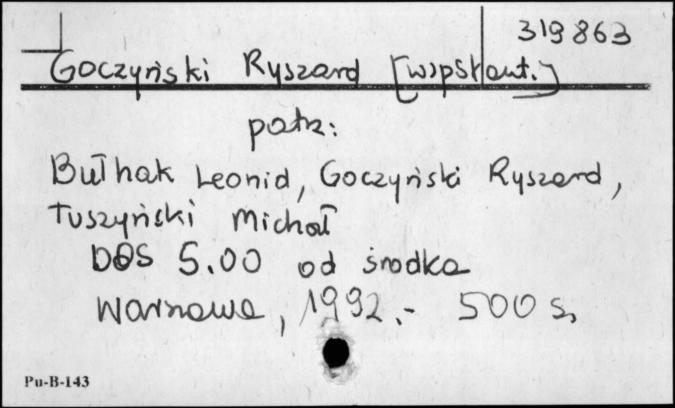 319863
Goczyński Ryszard [wspsłaut.]
patrz:
Bułhak Leonid, Goczyński Ryszard,
Tuszyński Michał
DOS 5.00 od środka
Warszawa, 1992.- 500 s.
Pu-B-143